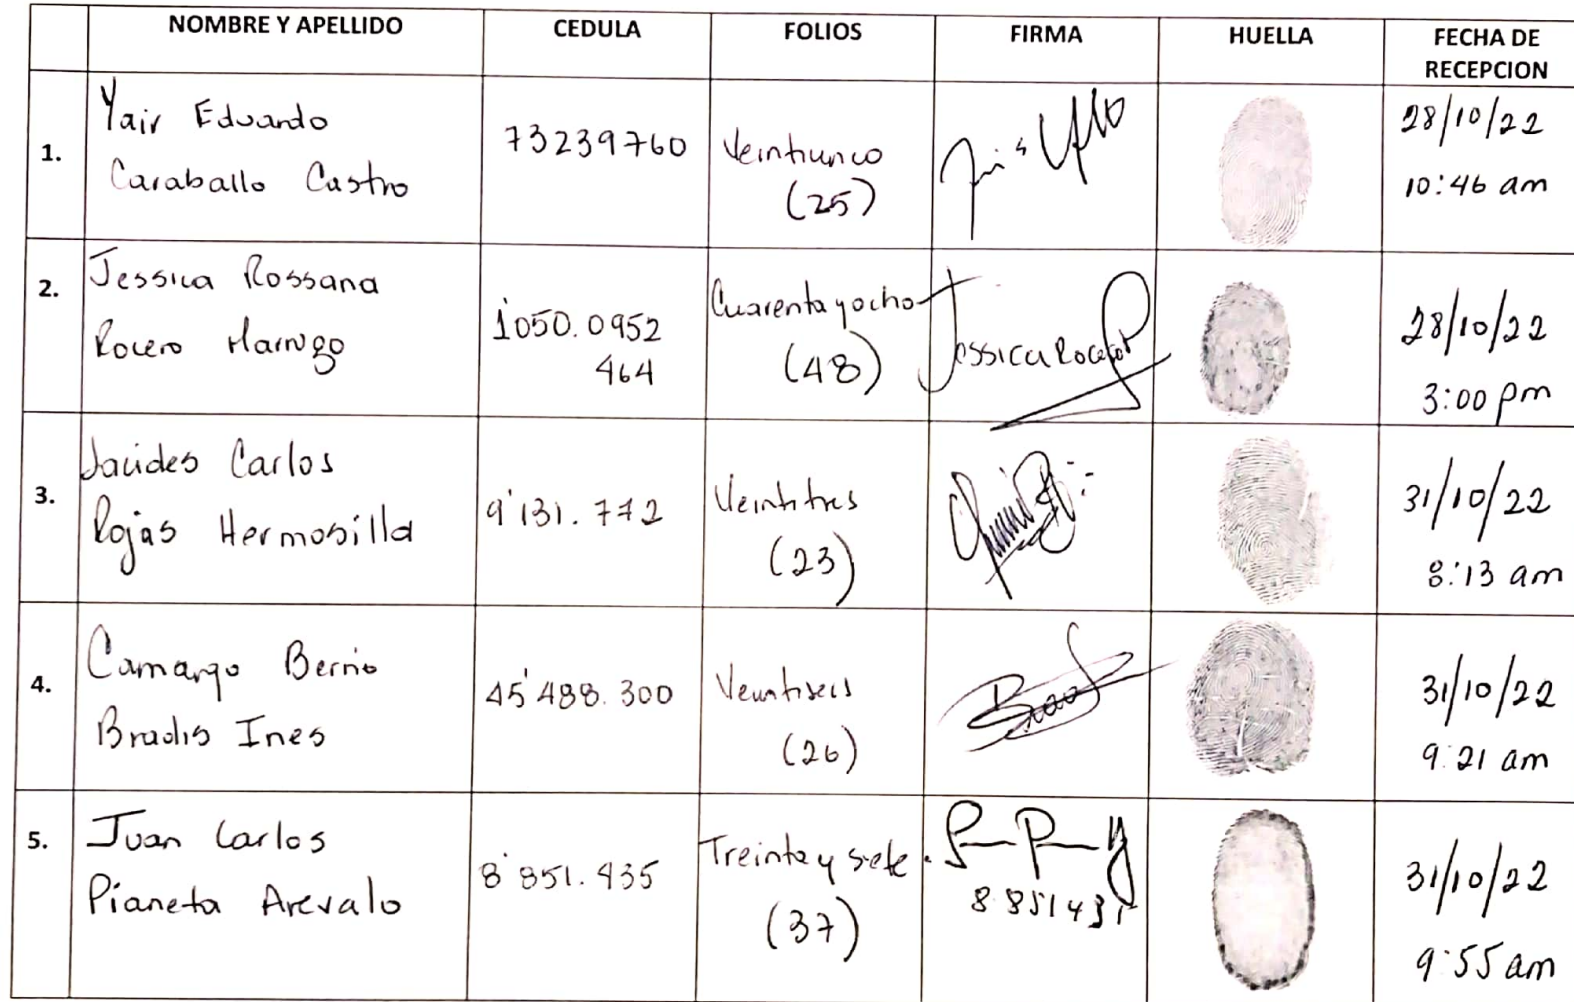 NOMBRE Y APELLIDO CEDULA FOLIOS FIRMA HUELLA FECHA DE RECEPCION
1.
Yair Eduardo
Caraballo Castro
73239760
Veintiunco
(25)
28/10/22
10:46 am
2.
Jessica Rossana
Rocero Marrugo
1'050.0952
464
Cuarenta y ocho
(48)
Jessica Rocero
28/10/22
3:00 pm
3.
Carlos
Rojas Hermosilla
9'131.772
Veintitres
(23)
31/10/22
8:13 am
4.
Camargo Berrio
Bradis Ines
45'488.300
Veintiseis
(26)
31/10/22
9:21 am
5.
Juan Carlos
Pianeta Arevalo
8'851.435
Treinta y siete.
(37)
8851435
31/10/22
9:55 am